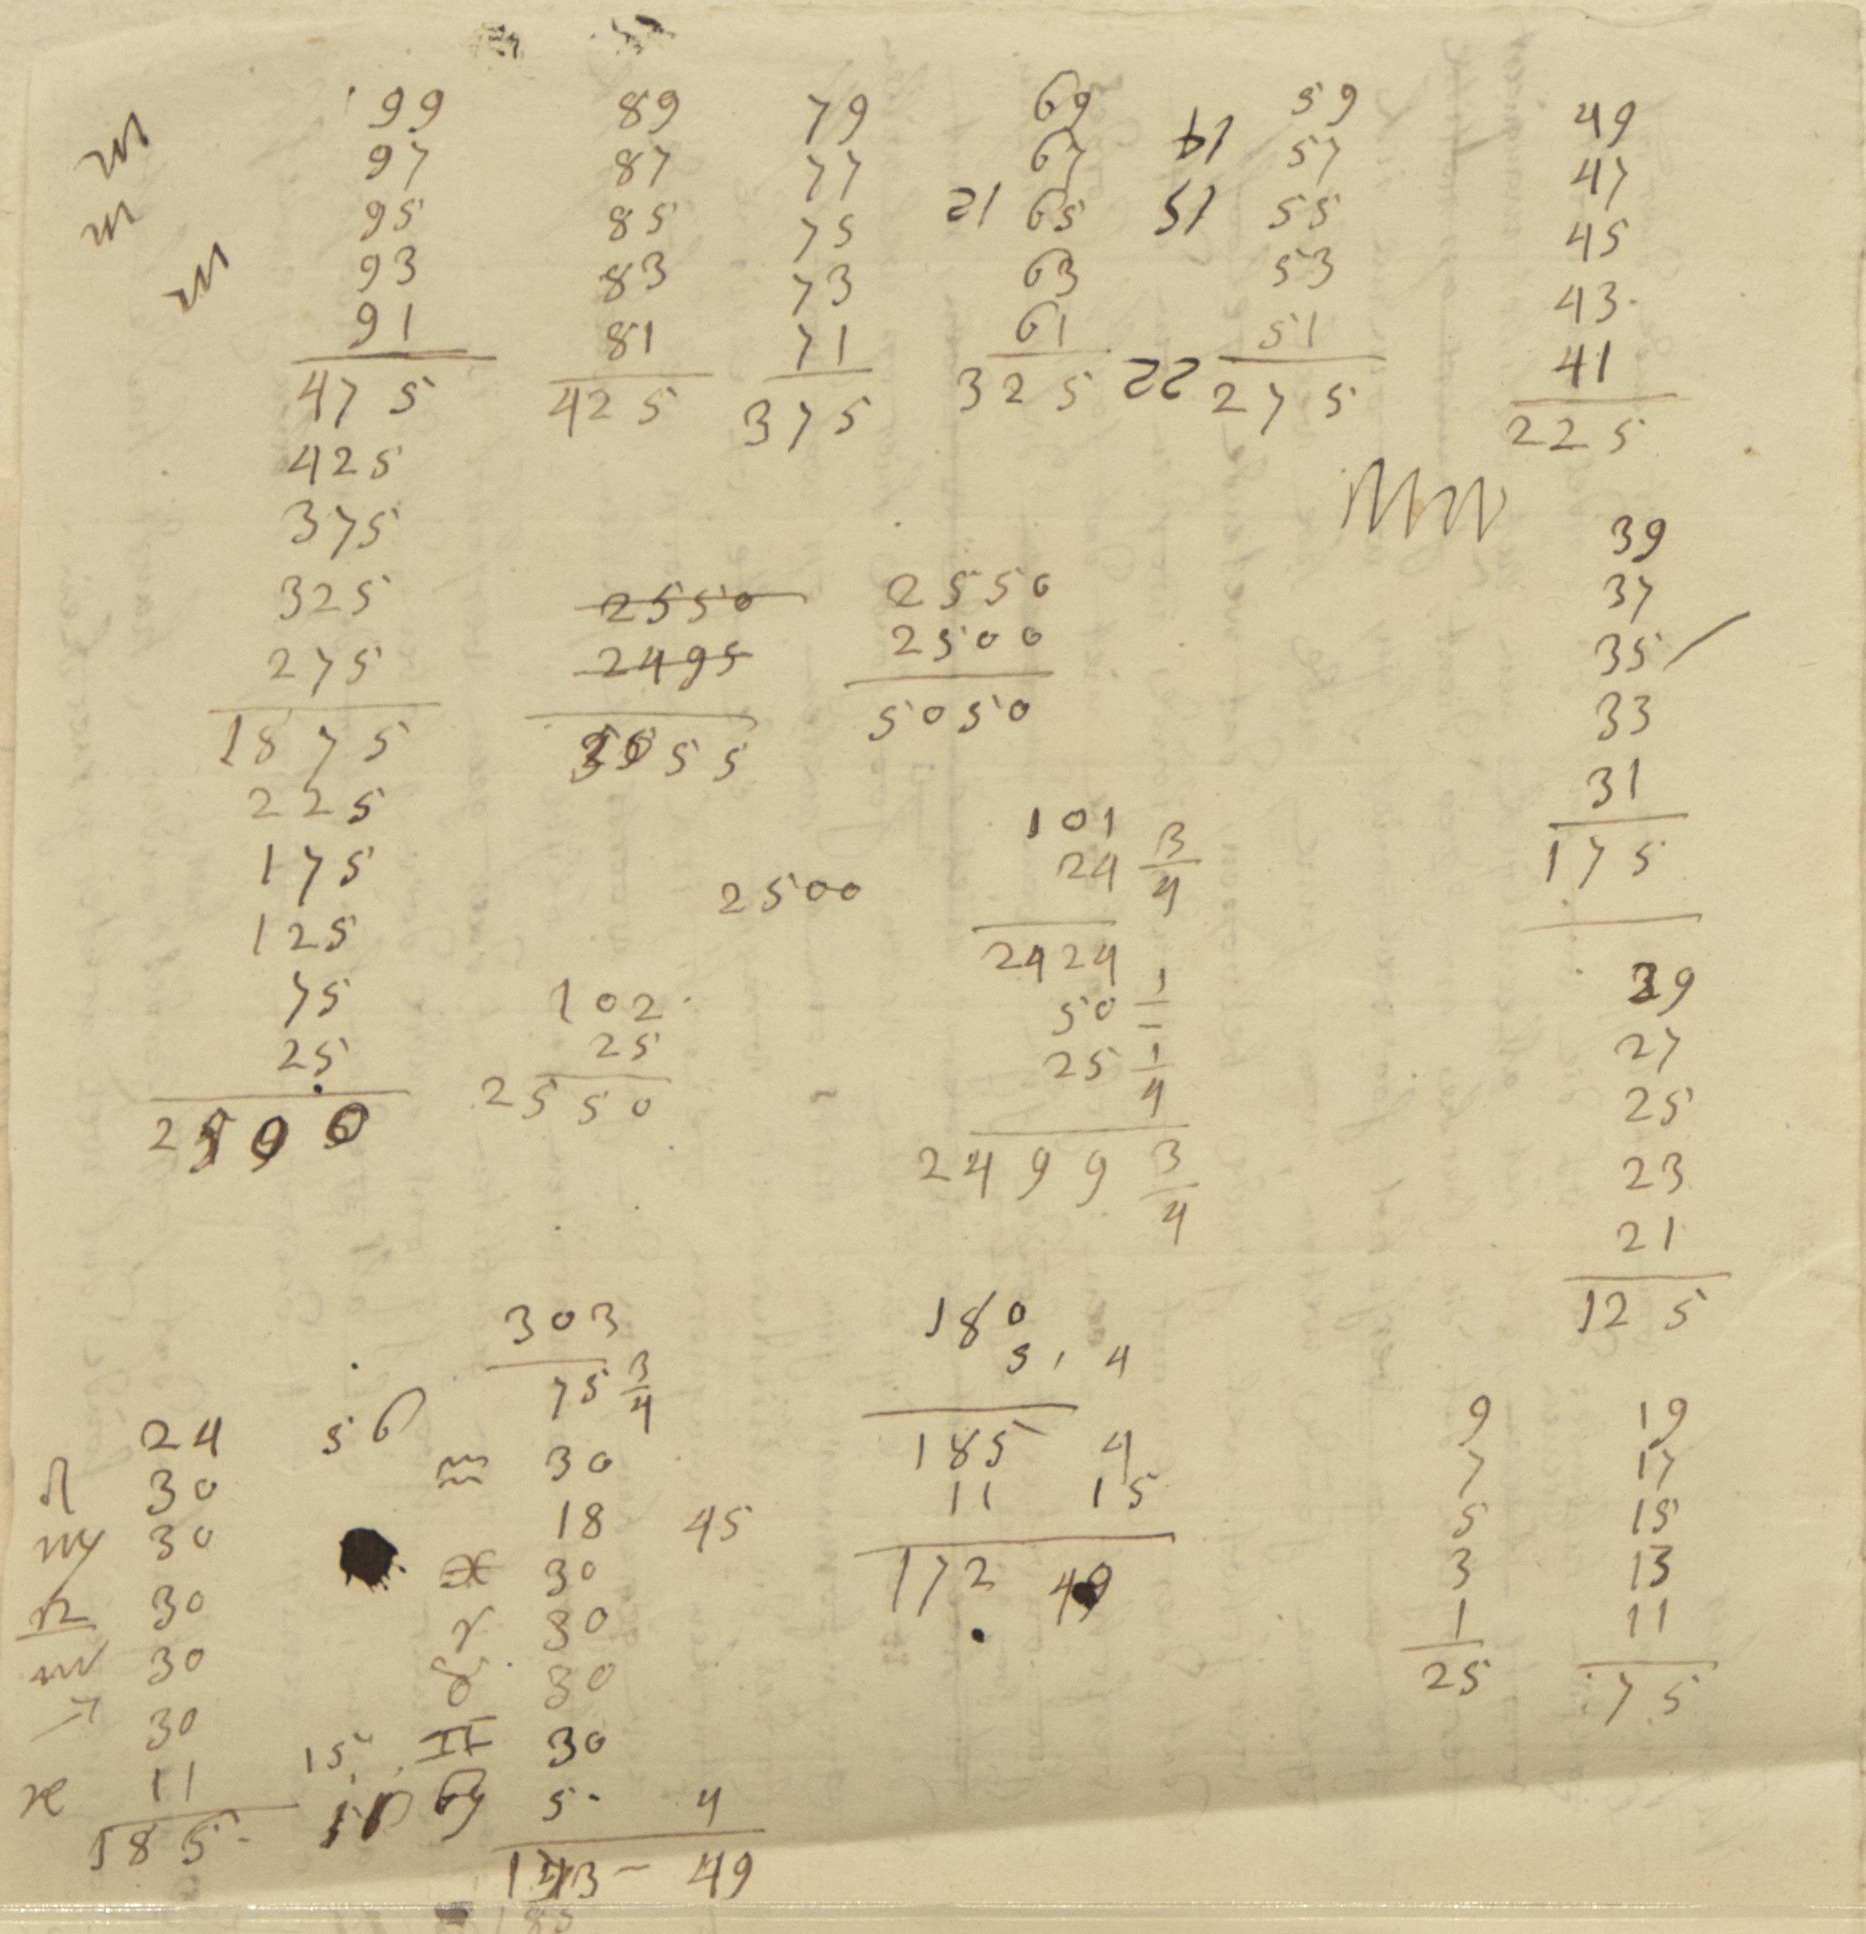 99 89 79 69 59 49
97 87 77 67 14 57 47
95 85 75 12 65 15 55 45
93 83 73 63 53 43
91 81 71 61 51 41
475 425 375 325 22 275 225
425
375 39
325 2550 2550 37
275 2495 2500 35
1875 55 5050 33
225 101 31
175 2500 24 3/4 175
125 2424 29
75 102 50 1/ 27
25 25 25 1/4 25
2500 2550 2499 3/4 23
21
303 180 125
75 3/4 5 , 4
24 56 ♒ 30 185 4 9 19
♌ 30 18 45 11 15 7 17
♍ 30 ♓ 30 172 49 5 15
♎ 30 ♈ 30 3 13
♏ 30 ♉ 30 1 11
♐ 30 15 ♊ 30 25 75
11 ♋ 5 4
185 49